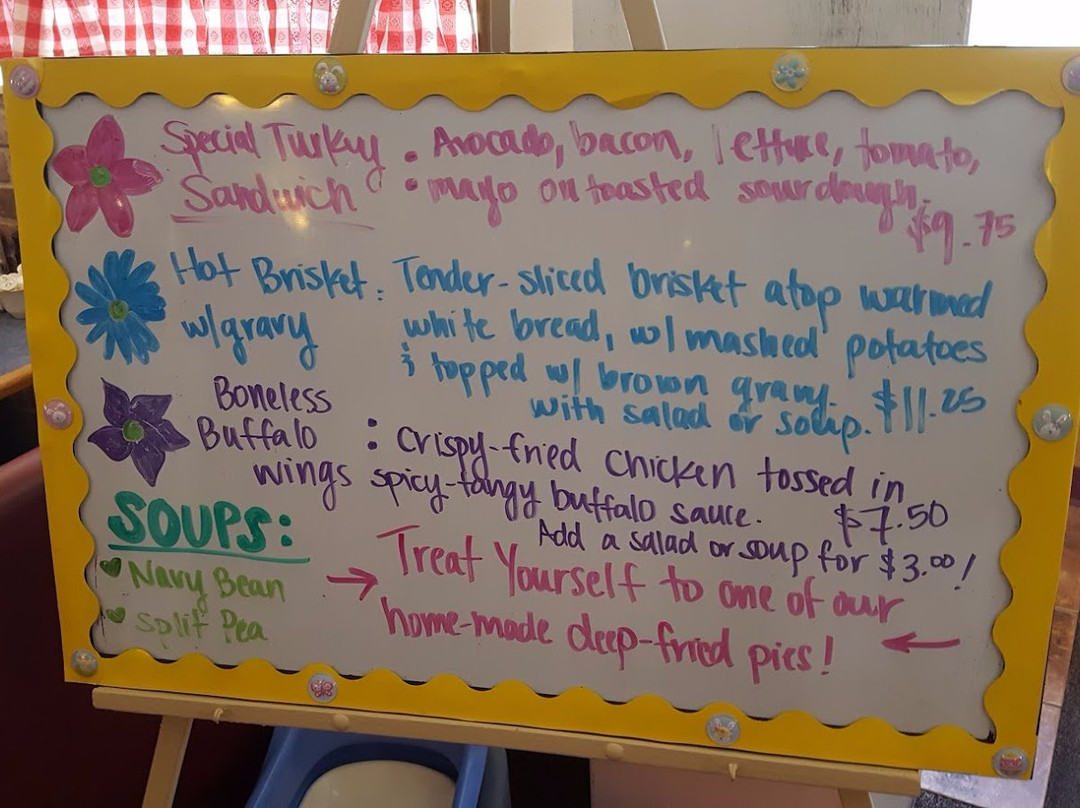 Special Turkey : Avocado, bacon, lettuce, tomato,
Sandwich : mayo on toasted sourdough.
$9.75
Hot Brisket : Tender-sliced brisket atop warmed
w/gravy white bread, w/ mashed potatoes
& topped w/ brown gravy.
with salad or soup. $11.25
Boneless
Buffalo : Crispy-fried chicken tossed in
wings spicy-tangy buffalo sauce. $7.50
Add a salad or soup for $3.00!
SOUPS:
Navy Bean
Split Pea
→ Treat Yourself to one of our
home-made deep-fried pies! ←